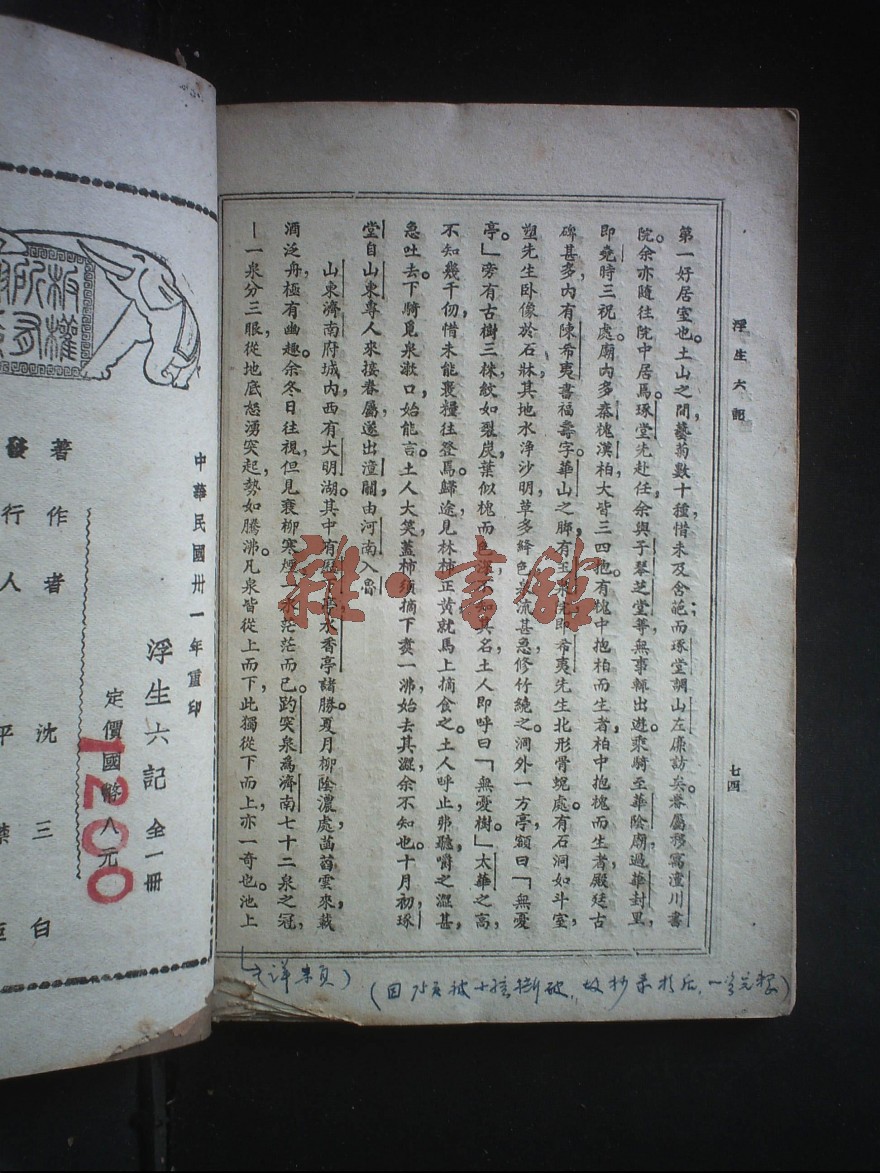 浮生六記
七四
第一好居室也。土山之間,藝菊數十種,惜未及含葩,而琢堂調山左廉訪矣。眷屬移寓潼川書
院,余亦隨往院中居焉。琢堂先赴任,余與子琴芝堂等無事,輒出遊。乘騎至華陰廟,過華封里,
即堯時三祝處。廟內多秦槐漢柏,大皆三四抱,有槐中抱柏而生者,柏中抱槐而生者。殿廷古
碑甚多,內有陳希夷書福壽字。華山之脚,有玉泉院,即希夷先生化形骨蛻處。有石洞如斗室,
塑先生卧像於石牀。其地水淨沙明,草多絳色,泉流甚急,修竹繞之。洞外一方亭,額曰「無憂
亭。」旁有古樹三株,紋如裂炭,葉似槐而色深,不知其名,土人即呼曰「無憂樹。」太華之高,
不知幾千仞,惜未能裹糧往登焉。歸途見林柿正黃,就馬上摘食之。土人呼止,弗聽,嚼之澀甚,
急吐去。下騎覓泉漱口,始能言。土人大笑。蓋柿須摘下煑一沸,始去其澀,余不知也。十月初,琢
堂自山東專人來接眷屬,遂出潼關,由河南入魯。
山東濟南府城內,西有大明湖。其中有歷下亭水香亭諸勝。夏月柳陰濃處,菡萏雲來,載
酒泛舟,極有幽趣。余冬日往視,但見衰柳寒煙,一水茫茫而已。趵突泉為濟南七十二泉之冠,
一泉分三眼,從地底怒湧突起,勢如騰沸。凡泉皆從上而下,此獨從下而上,亦一奇也。池上
(詳末頁)
(因75頁被
破,故抄录於后,
中華民國卅一年重印
浮生六記 全一冊
定價國幣八元
1200
著作者 沈三白
發行人 平襟
版權所有
雜·書館